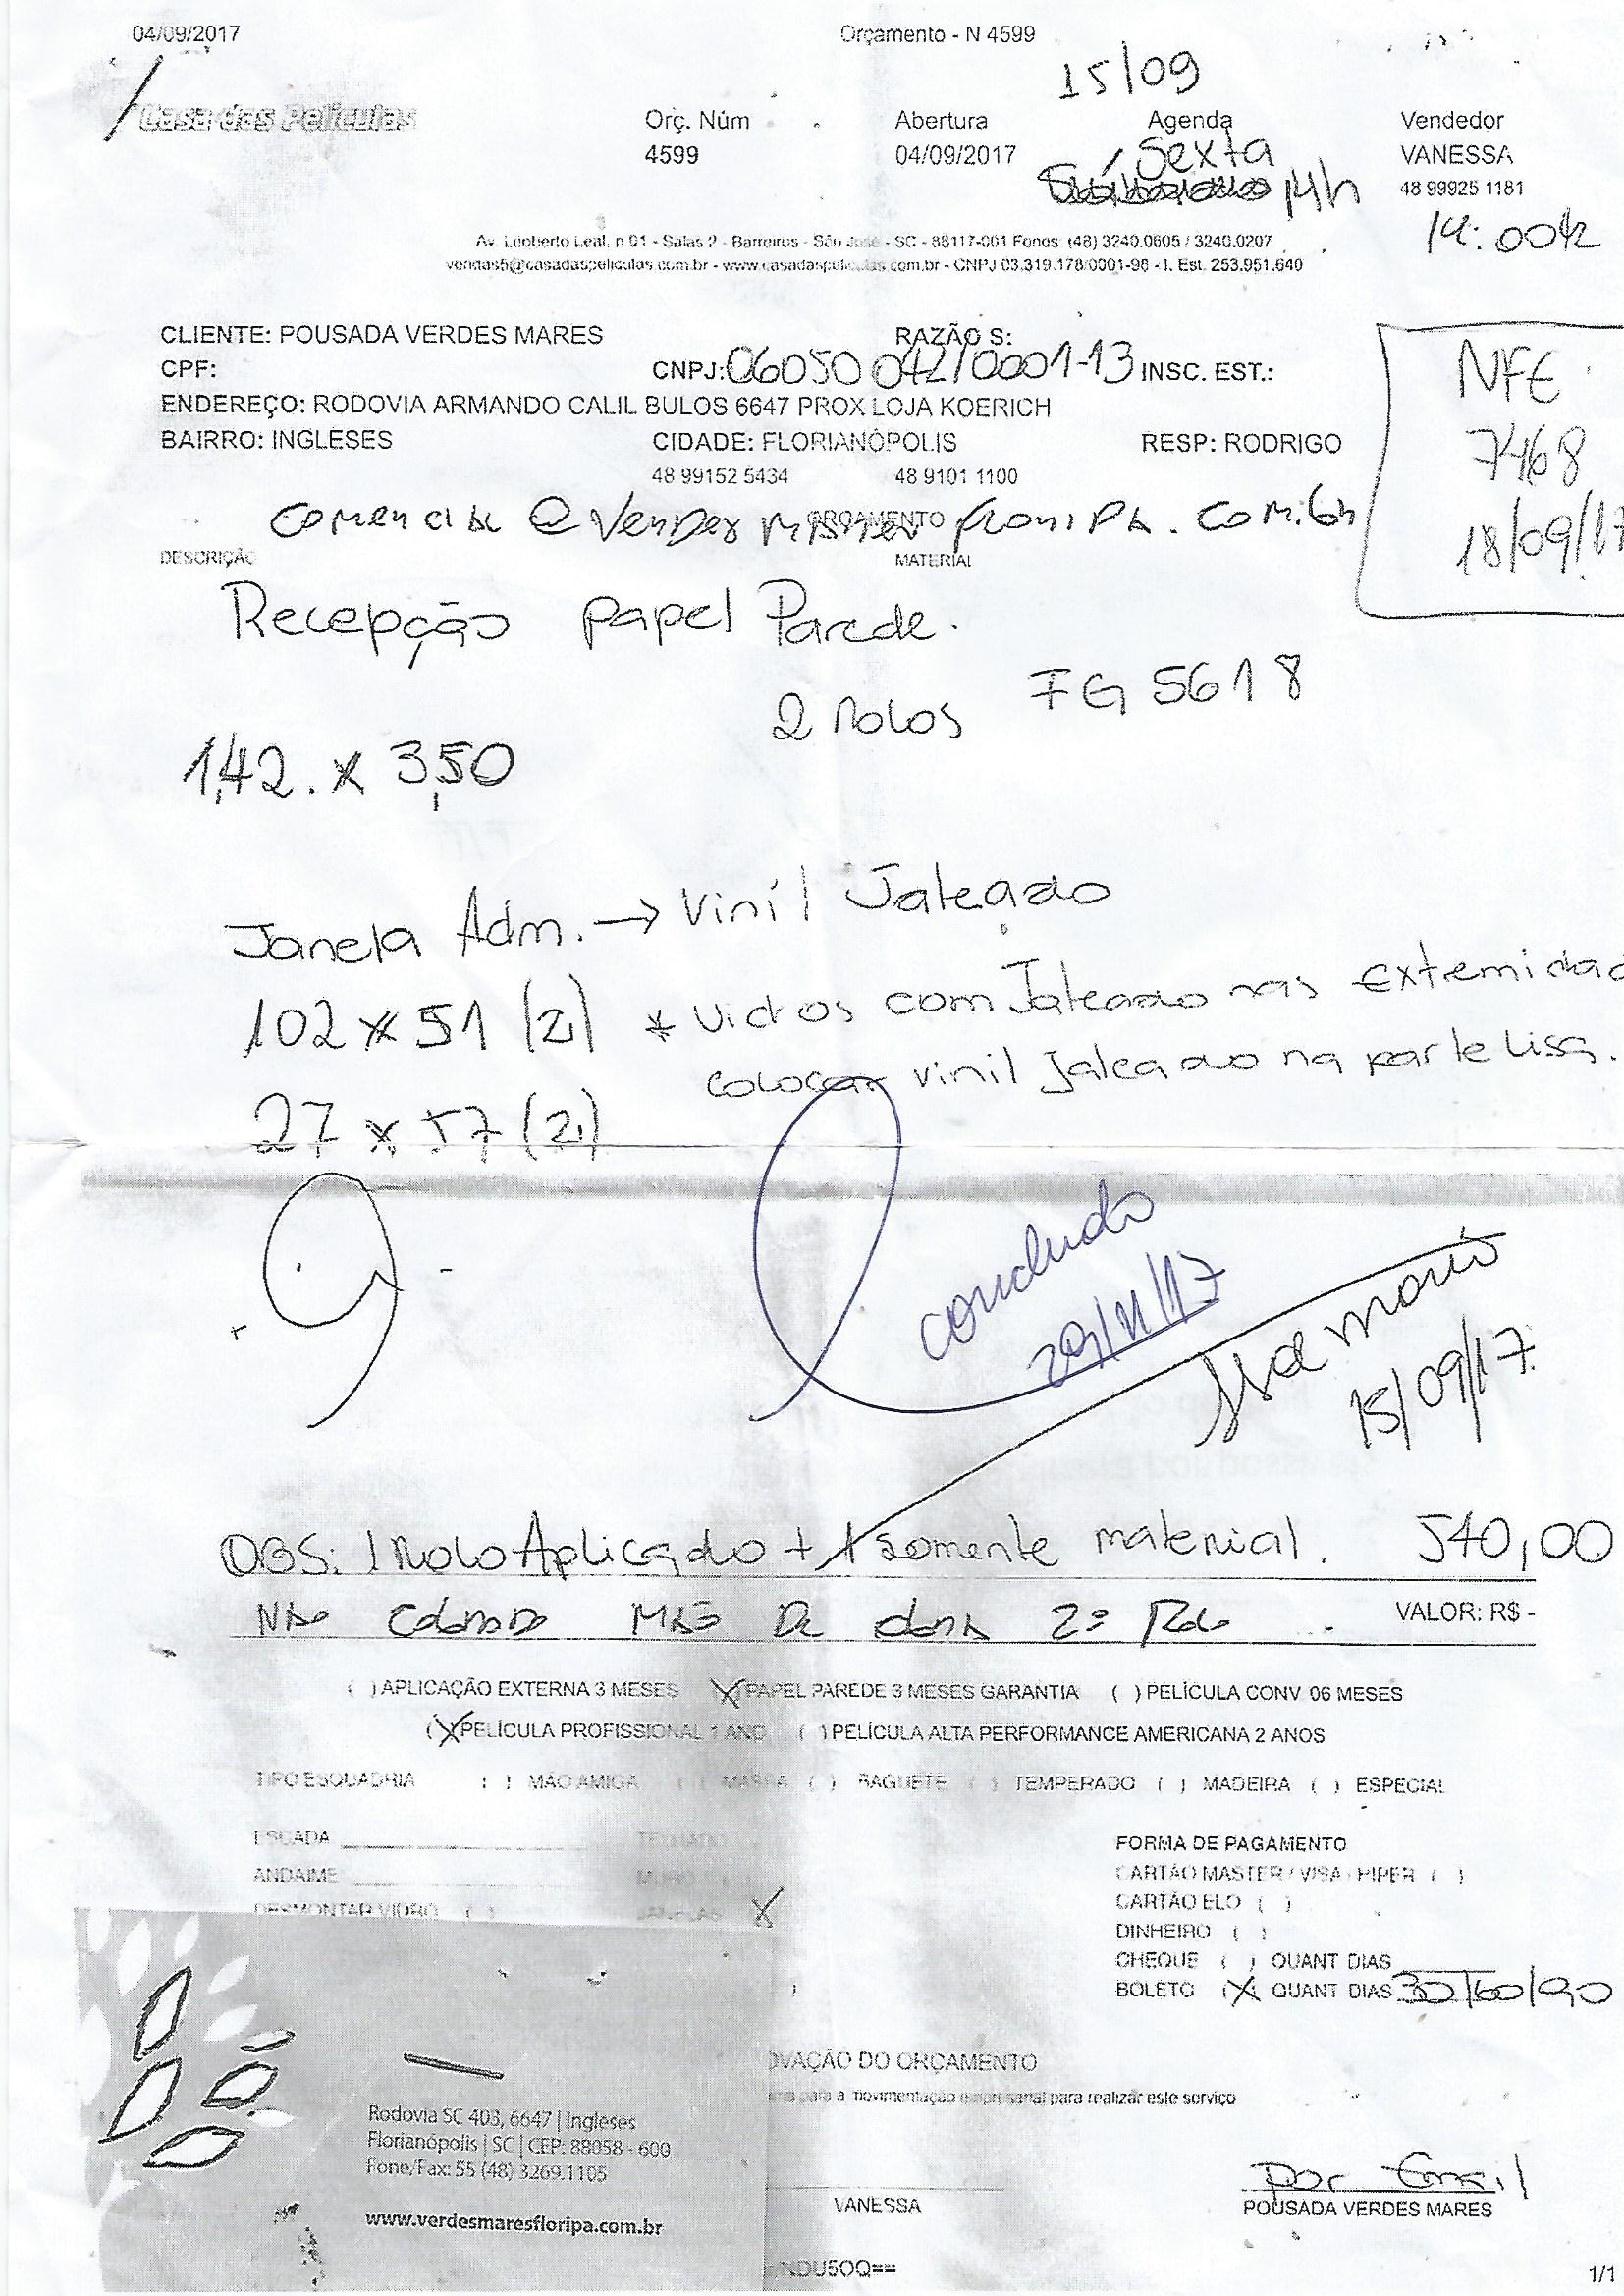 04/09/2017
Orçamento - N 4599
15/09
Casa das Películas
Orç. Núm
Abertura
Agenda
Vendedor
4599
04/09/2017
Sexta
VANESSA
14h
48 99925 1181
14:00h
Av. Leoberto Leal, n 01 - Salas 2 - Barreiros - São José - SC - 88117-001 Fones: (48) 3240.0605 / 3240.0207
vendas5@casadaspeliculas.com.br - www.casadaspeliculas.com.br - CNPJ 03.319.178/0001-96 - I. Est. 253.951.640
CLIENTE: POUSADA VERDES MARES
RAZÃO S:
CPF:
CNPJ: 06050 042/0001-13 INSC. EST.:
ENDEREÇO: RODOVIA ARMANDO CALIL BULOS 6647 PROX LOJA KOERICH
BAIRRO: INGLESES
CIDADE: FLORIANÓPOLIS
RESP: RODRIGO
48 99152 5434
48 9101 1100
NFE
7468
18/09/17
ORÇAMENTO
DESCRIÇÃO
MATERIAL
Recepção papel Parede.
2 Rolos FG 5618
1,42 . x 3,50
Janela Adm. → Vinil Jateado
102 x 51 (2) * Vidros com Jateado nas extemidad
colocar vinil Jateado na parte lisa.
27 x 57 (2)
concluido
29/11/17
15/09/17
OBS: 1 Rolo Aplicado + 1 somente material. 540,00
Não Cobrado Mão De obra 2º Rolo
VALOR: R$ -
( ) APLICAÇÃO EXTERNA 3 MESES (X) PAPEL PAREDE 3 MESES GARANTIA ( ) PELÍCULA CONV 06 MESES
(X) PELÍCULA PROFISSIONAL 1 ANO ( ) PELÍCULA ALTA PERFORMANCE AMERICANA 2 ANOS
TIPO ESQUADRIA ( ) MÃO AMIGA ( ) MASSA ( ) BAGUETE ( ) TEMPERADO ( ) MADEIRA ( ) ESPECIAL
ESCADA
ANDAIME
DESMONTAR VIDRO ( )
X
FORMA DE PAGAMENTO
CARTÃO MASTER / VISA / HIPER ( )
CARTÃO ELO ( )
DINHEIRO ( )
CHEQUE ( ) QUANT DIAS
BOLETO (X) QUANT DIAS 30/60/90
OVAÇÃO DO ORÇAMENTO
para a movimentação empresarial para realizar este serviço
Rodovia SC 403, 6647 | Ingleses
Florianópolis | SC | CEP: 88058 - 600
Fone/Fax: 55 (48) 3269.1105
www.verdesmaresfloripa.com.br
por Email
VANESSA
POUSADA VERDES MARES
NDU5OQ==
1/1